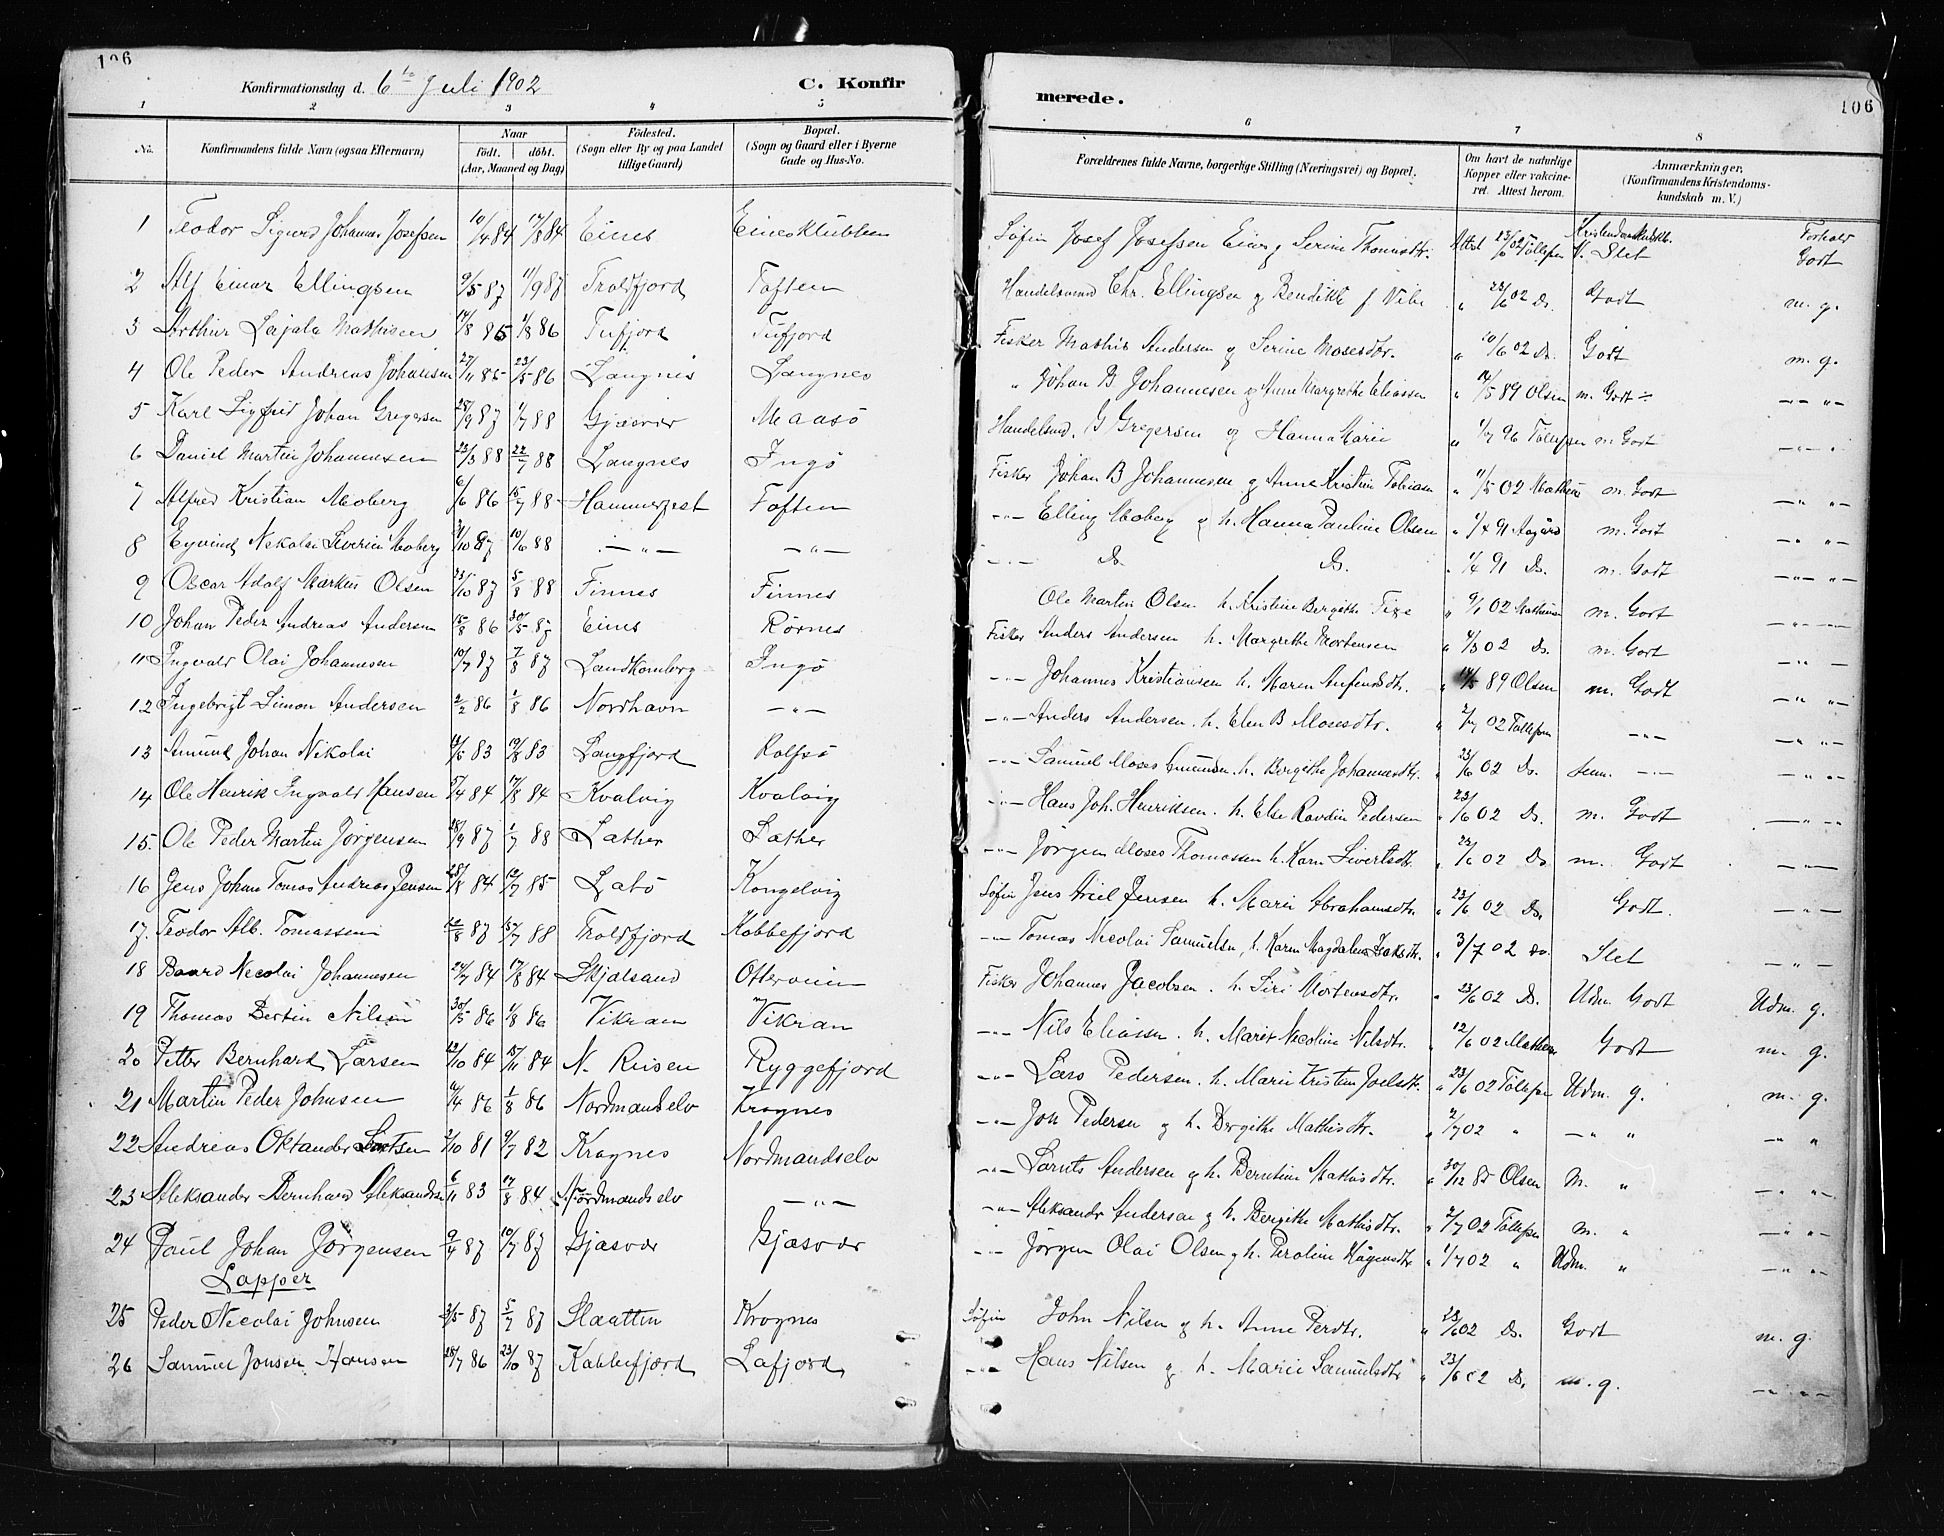 106
Konfirmationsdag d. 6te Juli 1902 C. Konfir
merede. 106
1 2 3 4 5 6 7 8
No. Konfirmandens fulde Navn (ogsaa Efternavn) Naar født. døbt. (Aar, Maaned og Dag) Fødested. (Sogn eller By og paa Landet tillige Gaard) Bopæl. (Sogn og Gaard eller i Byerne Gade og Hus-No. Forældrenes fulde Navne, borgerlige Stilling (Næringsvei) og Bopæl. Om havt de naturlige Kopper eller vakcineret. Attest herom. Anmærkninger. (Konfirmandens Kristendomskundskab m. V.)
Forhold
1 Teodor Sigurd Johannes Josefsen 10/4 84 17/8 84 Eines Einesklubben Søfin Josef Josefsen Eines g Serine Thomisdtr. Attst 23/6 02 Tollefsen N. Slet Godt
2 Alf Einar Ellingsen 9/5 87 11/9 87 Troldfjord Toften Handelsmand Chr. Ellingsen g Bendikte f 23/6 02 Do. Godt m. g.
3 Arthur Lajala Mathisen 17/8 85 1/8 86 Tufjord Tufjord Fisker Mathis Andersen g Serine Mosesdtr. " 10/6 02 Do. Godt m. g.
4 Ole Peder Andreas Johansen 27/11 85 23/5 86 Langnes Langnes " Johan B Johannesen g Anne Margrethe Eliassen " 14/5 89 Olsen m. Godt -"- "-
5 Karl Sigfrid Johan Gregersen 28/9 87 1/7 88 Gjæsvær Maasø Handelsmd. G Gregersen og Hanna Marie " 1/7 96 Tollefsen m Godt -"- "
6 Daniel Martin Johannesen 22/3 88 22/7 88 Langnes Ingø Fisker Johan B Johannesen g Anne Kristine Tobiasen " 11/5 02 Mathisen m. Godt -"- "-
7 Alfred Kristian Moberg 6/6 86 15/7 88 Hammerfest Toften -"- Elling Moberg g h. Hanna Pauline Olsen " 1/4 91 Aagård m. Godt -"- "-
8 Eyvind Nikolai Severin Moberg 31/10 87 10/6 88 -"- -"- -"- Do. Do. " 1/4 91 Do. m. Godt -"- "-
9 Oscar Adolf Markus Olsen 23/10 87 5/8 88 Finnes Finnes Ole Martin Olsen h. Kristine Bergithe " 9/1 02 Mathisen m. Godt -"- "-
10 Johan Peder Andreas Andersen 15/8 86 30/5 87 Eines Rørnes Fisker Anders Andersen h. Margrethe Mortensen " 4/3 02 Do. m. Godt -"-
11 Ingvald Olai Johannesen 10/7 87 7/8 87 Ingø -"- Johannes Kristiansen h. Maren " 14/5 89 Olsen m. Godt -"- "-
12 Ingebrigt Simon Andersen 2/2 86 1/8 86 Nordhavn -"- -"- Anders Andersen. h. Elen B Mosesdtr. " 2/7 02 Tollefsen -"- -"- "-
13 Amund Johan Nikolai 13/6 83 19/8 83 Langfjord Rolfsø -"- Samuel Moses h. Bergithe Johannesdtr. " 23/6 02 Do. -"- -"- "-
14 Ole Henrik Ingvald Hansen 5/4 84 17/8 84 Kvalvig Kvalvig -"- Hans Joh. Henriksen. h. Else Ravdin Pedersen " 23/6 02 Do. m. Godt -"- "-
15. Ole Peder Martin Jørgensen 28/9 87 1/7 88 Lather Lather -"- Jørgen Moses Thomassen h. Karn Sivertsdtr. " 23/6 02 Do m. Godt -"-
16 Jens Johan Tomas Andreas Jensen 28/8 84 12/7 85 Latø Kongelvig Søfin Jens Ariel Jensen h. Marie Abrahamsdtr. " 23/6 02 Do. Godt. -"-
17. Teodor Alb. Tomassen 12/8 87 15/7 88 Troldfjord Kobbefjord -"- Tomas Nicolai Samuelsn, h. Karen Magdalena Isaksdtr. " 3/7 02 Do. Slet -"-
18 Baard Necolai Johannesen 24/7 84 17/8 84 Skjælsand Fisker Johannes Jacobsen. h. Siri Mortensdtr. " 23/6 02 Do. Udm. Godt Udm. g.
19 Thomas Bertin Nilsen 30/5 86 1/8 86 Vikran Vikran -"- Nils Eliassen. h. Marit Necoline Nilsdtr. " 12/6 02 Mathisen Godt m. g.
20 Petter Bernhard Larsen 23/10 84 15/11 84 N. Reisen Ryggefjord -"- Lars Pedersen. h. Marie Kristine Joelsdtr. " 23/6 02 Tollefsen Udm. g. m. g.
21 Martin Peder Johnsen 12/4 86 1/8 86 Nordmandselv Krognes -"- Jon Pedersen og h. Bergithe Mathisdtr. " 2/7 02 " -"- " " "
22 Andreas Oktander Lorntsen 2/10 81 9/7 82 Krognes Nordmandselv -"- Lornts Andersen og h. Berntine Mathisdtr. " 30/12 85 Olsen M. " -"- "-
23 Aleksander Bernhard Aleksandersen 6/11 83 17/8 84 Nordmandselv -"- -"- Aleksander Andersen g h. Bergithe Mathisdtr. " 2/7 02 Tollefsen m. " -"- "-
24 Paul Johan Jørgensen 9/4 87 10/7 87 Gjæsvær Gjæsvær -"- Jørgen Olai Olsen g h. Peroline Hågensdtr. " 1/7 02 " Udm. " -"- "-
Lapper
25 Peder Necolai Johnsen 3/5 87 5/7 87 Slaatten Krognes Søfin John Nilsen g h. Anne Perdtr. " 23/6 02 Do. Godt m. g.
26 Samuel Jonsen Hansen 28/7 86 23/10 87 Kobbefjord Lafjord -"- Hans Nilsen g h. Marie Samuelsdtr. " 23/6 02 Do. m. g. -"- "-